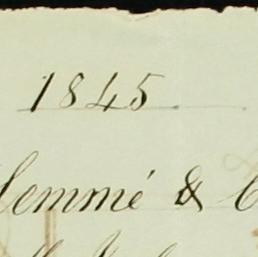 1845
lemmé & C